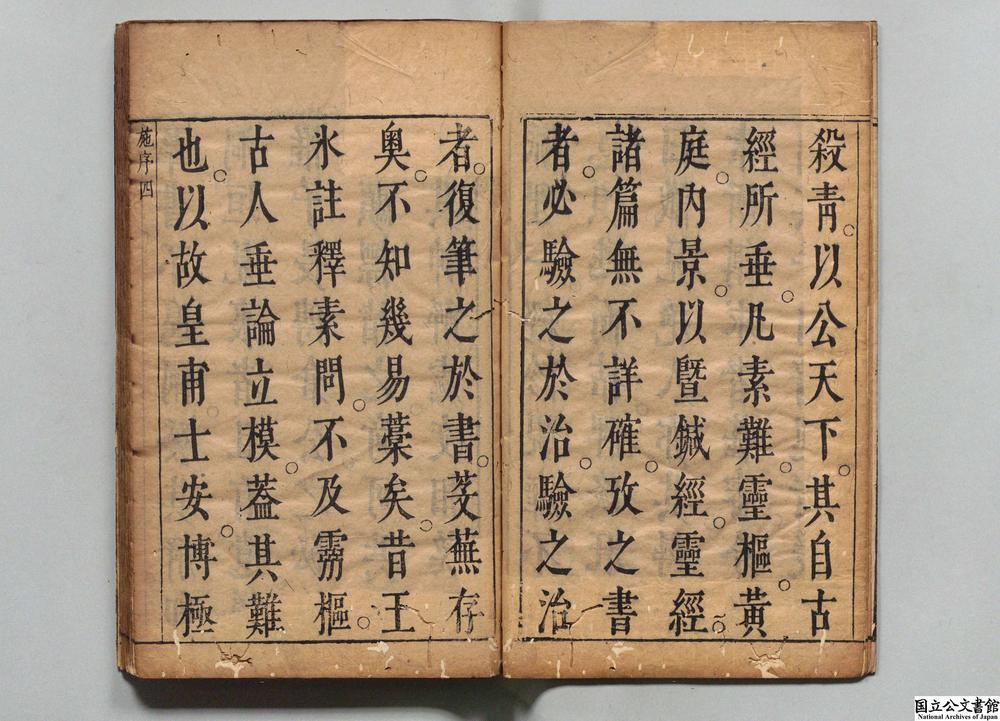 殺青。以公天下。其自古
經所垂。凡素難。靈樞。黃
庭。內景。以暨鍼經。靈經。
諸篇無不詳確。攷之書
者。必驗之於治。驗之治
者。復筆之於書。芟蕪存
奥。不知幾易藁矣。昔王
氷註釋素問。不及靈樞。
古人垂論立模。葢其難
也。以故皇甫士安。博極
施序四
国立公文書館
National Archives of Japan